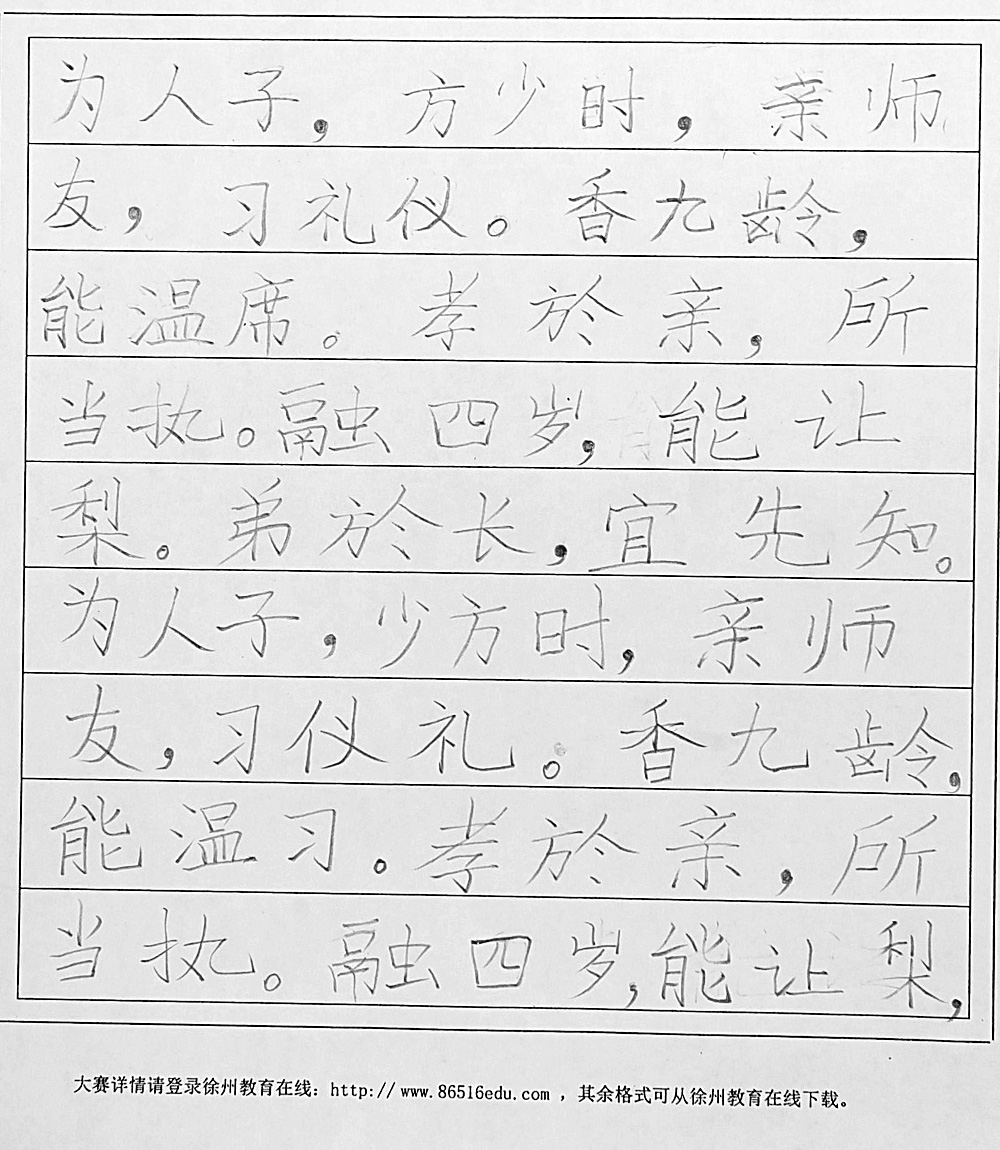 为人子，方少时，亲师
友，习礼仪。香九龄，
能温席。孝於亲，所
当执。融四岁，能让
梨。弟於长，宜先知。
为人子，少方时，亲师
友，习仪礼。香九龄，
能温习。孝於亲，所
当执。融四岁，能让梨，
大赛详情请登录徐州教育在线：http://www.86516edu.com，其余格式可从徐州教育在线下载。